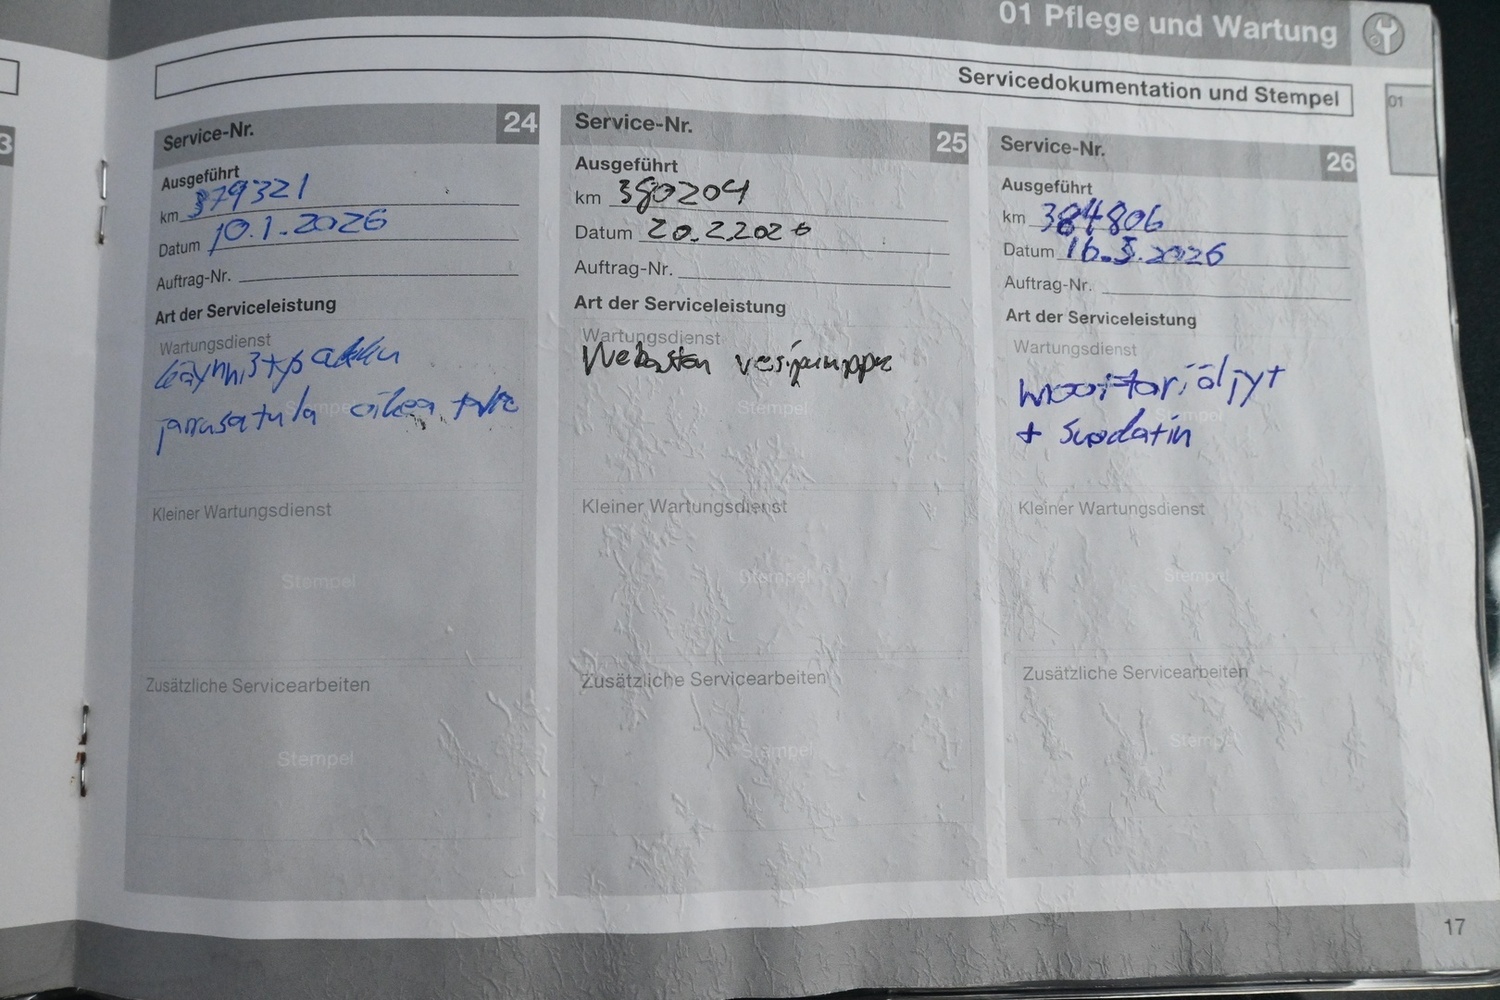 01 Pflege und Wartung
Servicedokumentation und Stempel
01
3
Service-Nr. 24
Ausgeführt
km 379321
Datum 10.1.2026
Auftrag-Nr.
Art der Serviceleistung
Wartungsdienst
käynnistysakku
jarrusatula oikea
Stempel
Kleiner Wartungsdienst
Stempel
Zusätzliche Servicearbeiten
Stempel
Service-Nr. 25
Ausgeführt
km 380204
Datum 20.2.2026
Auftrag-Nr.
Art der Serviceleistung
Wartungsdienst
Webaston vesipumppu
Stempel
Kleiner Wartungsdienst
Stempel
Zusätzliche Servicearbeiten
Stempel
Service-Nr. 26
Ausgeführt
km 384806
Datum 16.3.2026
Auftrag-Nr.
Art der Serviceleistung
Wartungsdienst
moottoriöljyt
+ suodatin
Stempel
Kleiner Wartungsdienst
Stempel
Zusätzliche Servicearbeiten
Stempel
17